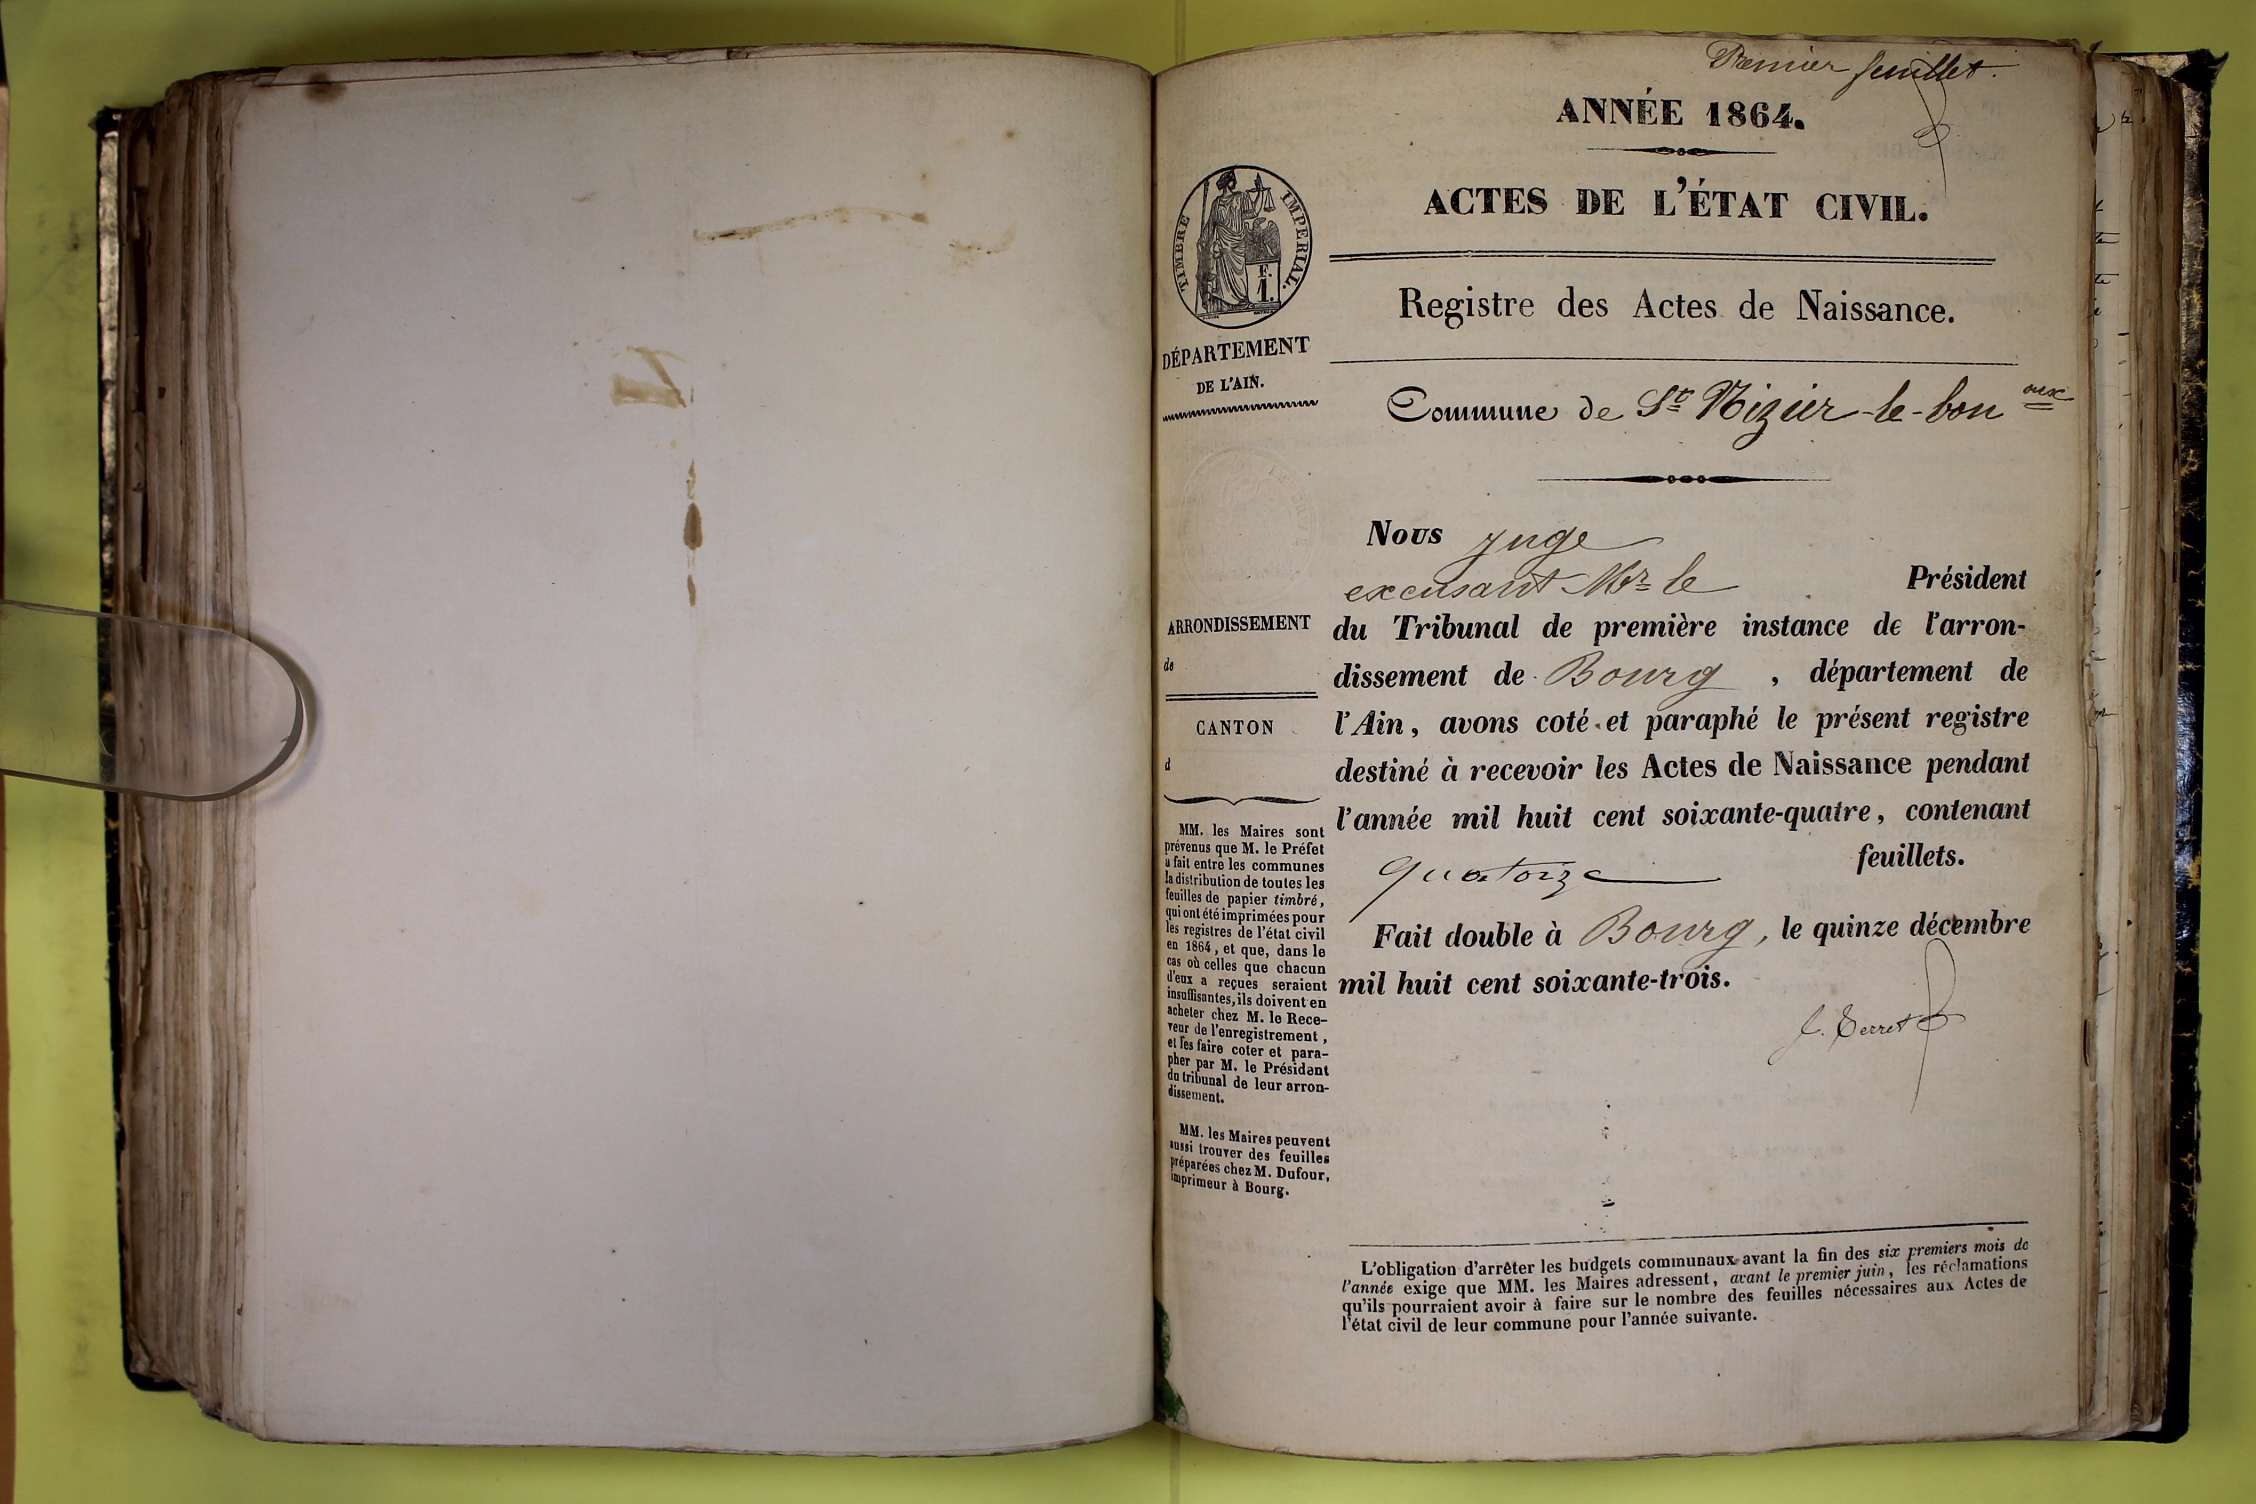 Premier feuillet.
ANNÉE 1864.
ACTES DE L'ÉTAT CIVIL.
Registre des Actes de Naissance.
Commune de St Nizier-le-bouaux
TIMBRE IMPERIAL.
F.
1.
DÉPARTEMENT
DE L'AIN.
ARRONDISSEMENT
de
CANTON
d
MM. les Maires sont
prévenus que M. le Préfet
a fait entre les communes
la distribution de toutes les
feuilles de papier timbré,
qui ont été imprimées pour
les registres de l'état civil
en 1864, et que, dans le
cas où celles que chacun
d'eux a reçues seraient
insuffisantes, ils doivent en
acheter chez M. le Rece-
veur de l'enregistrement,
et les faire coter et para-
pher par M. le Président
du tribunal de leur arron-
dissement.
MM. les Maires peuvent
aussi trouver des feuilles
préparées chez M. Dufour,
imprimeur à Bourg.
Nous juge
excusant Mr le Président
du Tribunal de première instance de l'arron-
dissement de Bourg, département de
l'Ain, avons coté et paraphé le présent registre
destiné à recevoir les Actes de Naissance pendant
l'année mil huit cent soixante-quatre, contenant
quatorze feuillets.
Fait double à Bourg, le quinze décembre
mil huit cent soixante-trois.
J. Terret
L'obligation d'arrêter les budgets communaux avant la fin des six premiers mois de
l'année exige que MM. les Maires adressent, avant le premier juin, les réclamations
qu'ils pourraient avoir à faire sur le nombre des feuilles nécessaires aux Actes de
l'état civil de leur commune pour l'année suivante.